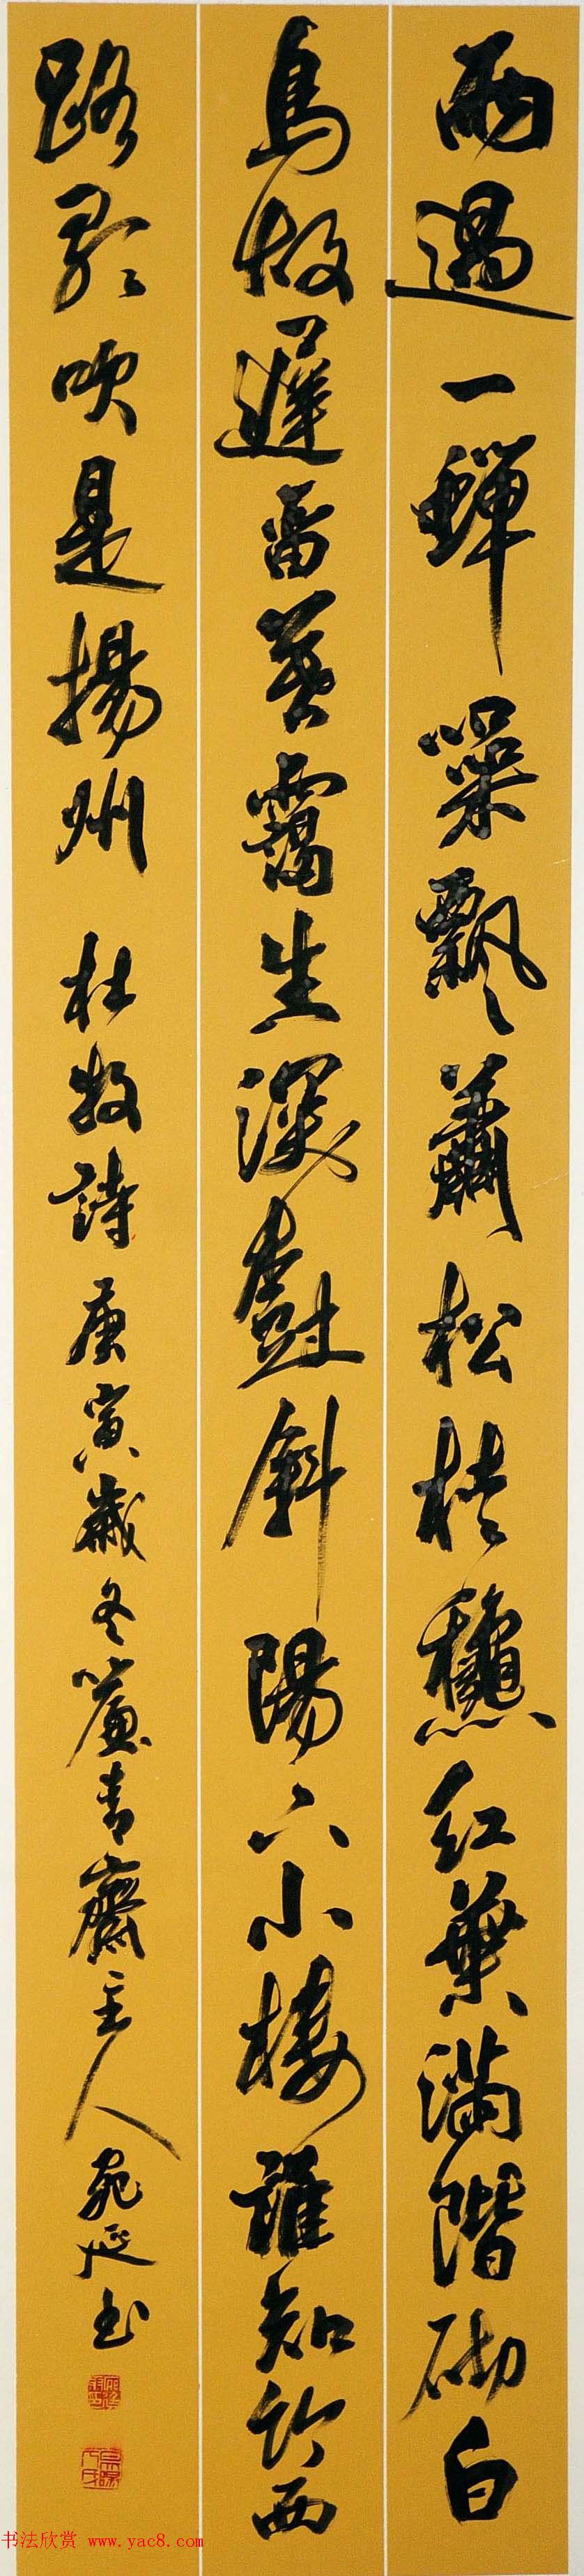 雨過一蟬噪飄蕭松桂龝紅葉滿階砌白
鳥故遲留暮靄生深樹斜陽下小樓誰知竹西
路歌吹是揚州 杜牧詩 庚寅歲冬簾青齋主人宛延书
书法欣赏 www.yac8.com